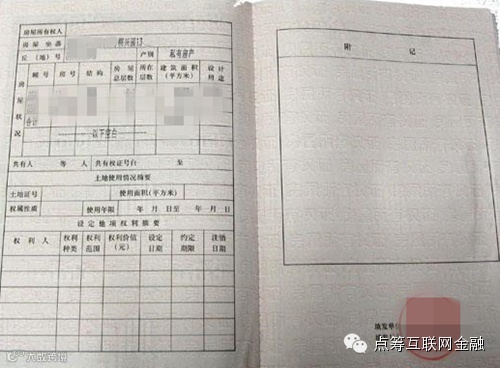 房屋所有权人
房屋坐落
丘（地）号
产别
私有房产
房屋状况
幢号
房号
结构
房屋总层数
所在层数
建筑面积（平方米）
设计用途
合计
以下空白
共有人 等 人 共有权证号自 至
土地使用情况摘要
土地证号 使用面积（平方米）
权属性质 使用年限 年 月 日至 年 月 日
设定他项权利摘要
权利人
权利种类
权利范围
权利价值（元）
设定日期
约定期限
注销日期
附 记
填发单
点筹互联网金融